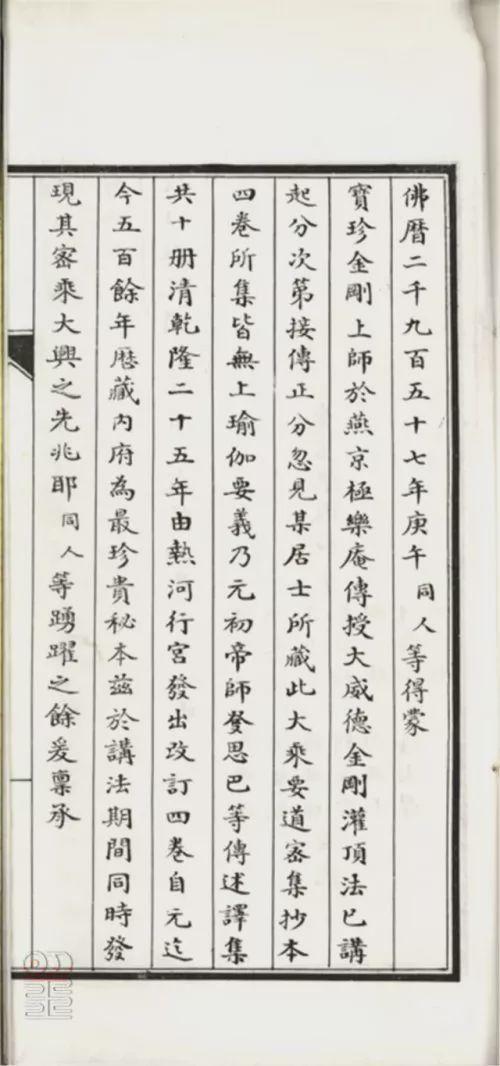 佛曆二千九百五十七年庚午同人等得蒙
寶珍金剛上師於燕京極樂庵傳授大威德金剛灌頂法已講
起分次第接傳正分忽見某居士所藏此大乘要道密集抄本
四卷所集皆無上瑜伽要義乃元初帝師發思巴等傳述譯集
共十册清乾隆二十五年由熱河行宮發出改訂四卷自元迄
今五百餘年曆藏內府為最珍貴秘本茲於講法期間同時發
現其密乘大興之先兆耶同人等踴躍之餘爰稟承